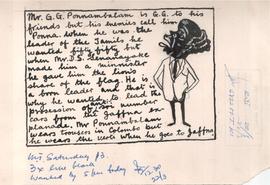 Mr. G. G. Ponnambalam is G.G. to his
friends but his enemies call him
Ponna. When he was the
leader of the Tamils he
wanted fifty fifty but
when Mr. D.S. Senanayake
made him a minister
he gave him the lion's
share of the flag. He is
a born leader and that is
why he wanted to lead the
procession of number
cars from the Jaffna
Mr. Ponnambalam
wears trousers in Colombo but
he wears the verti when he goes to Jaffna
Saturday p3.
3x
Wanted by 5 pm today